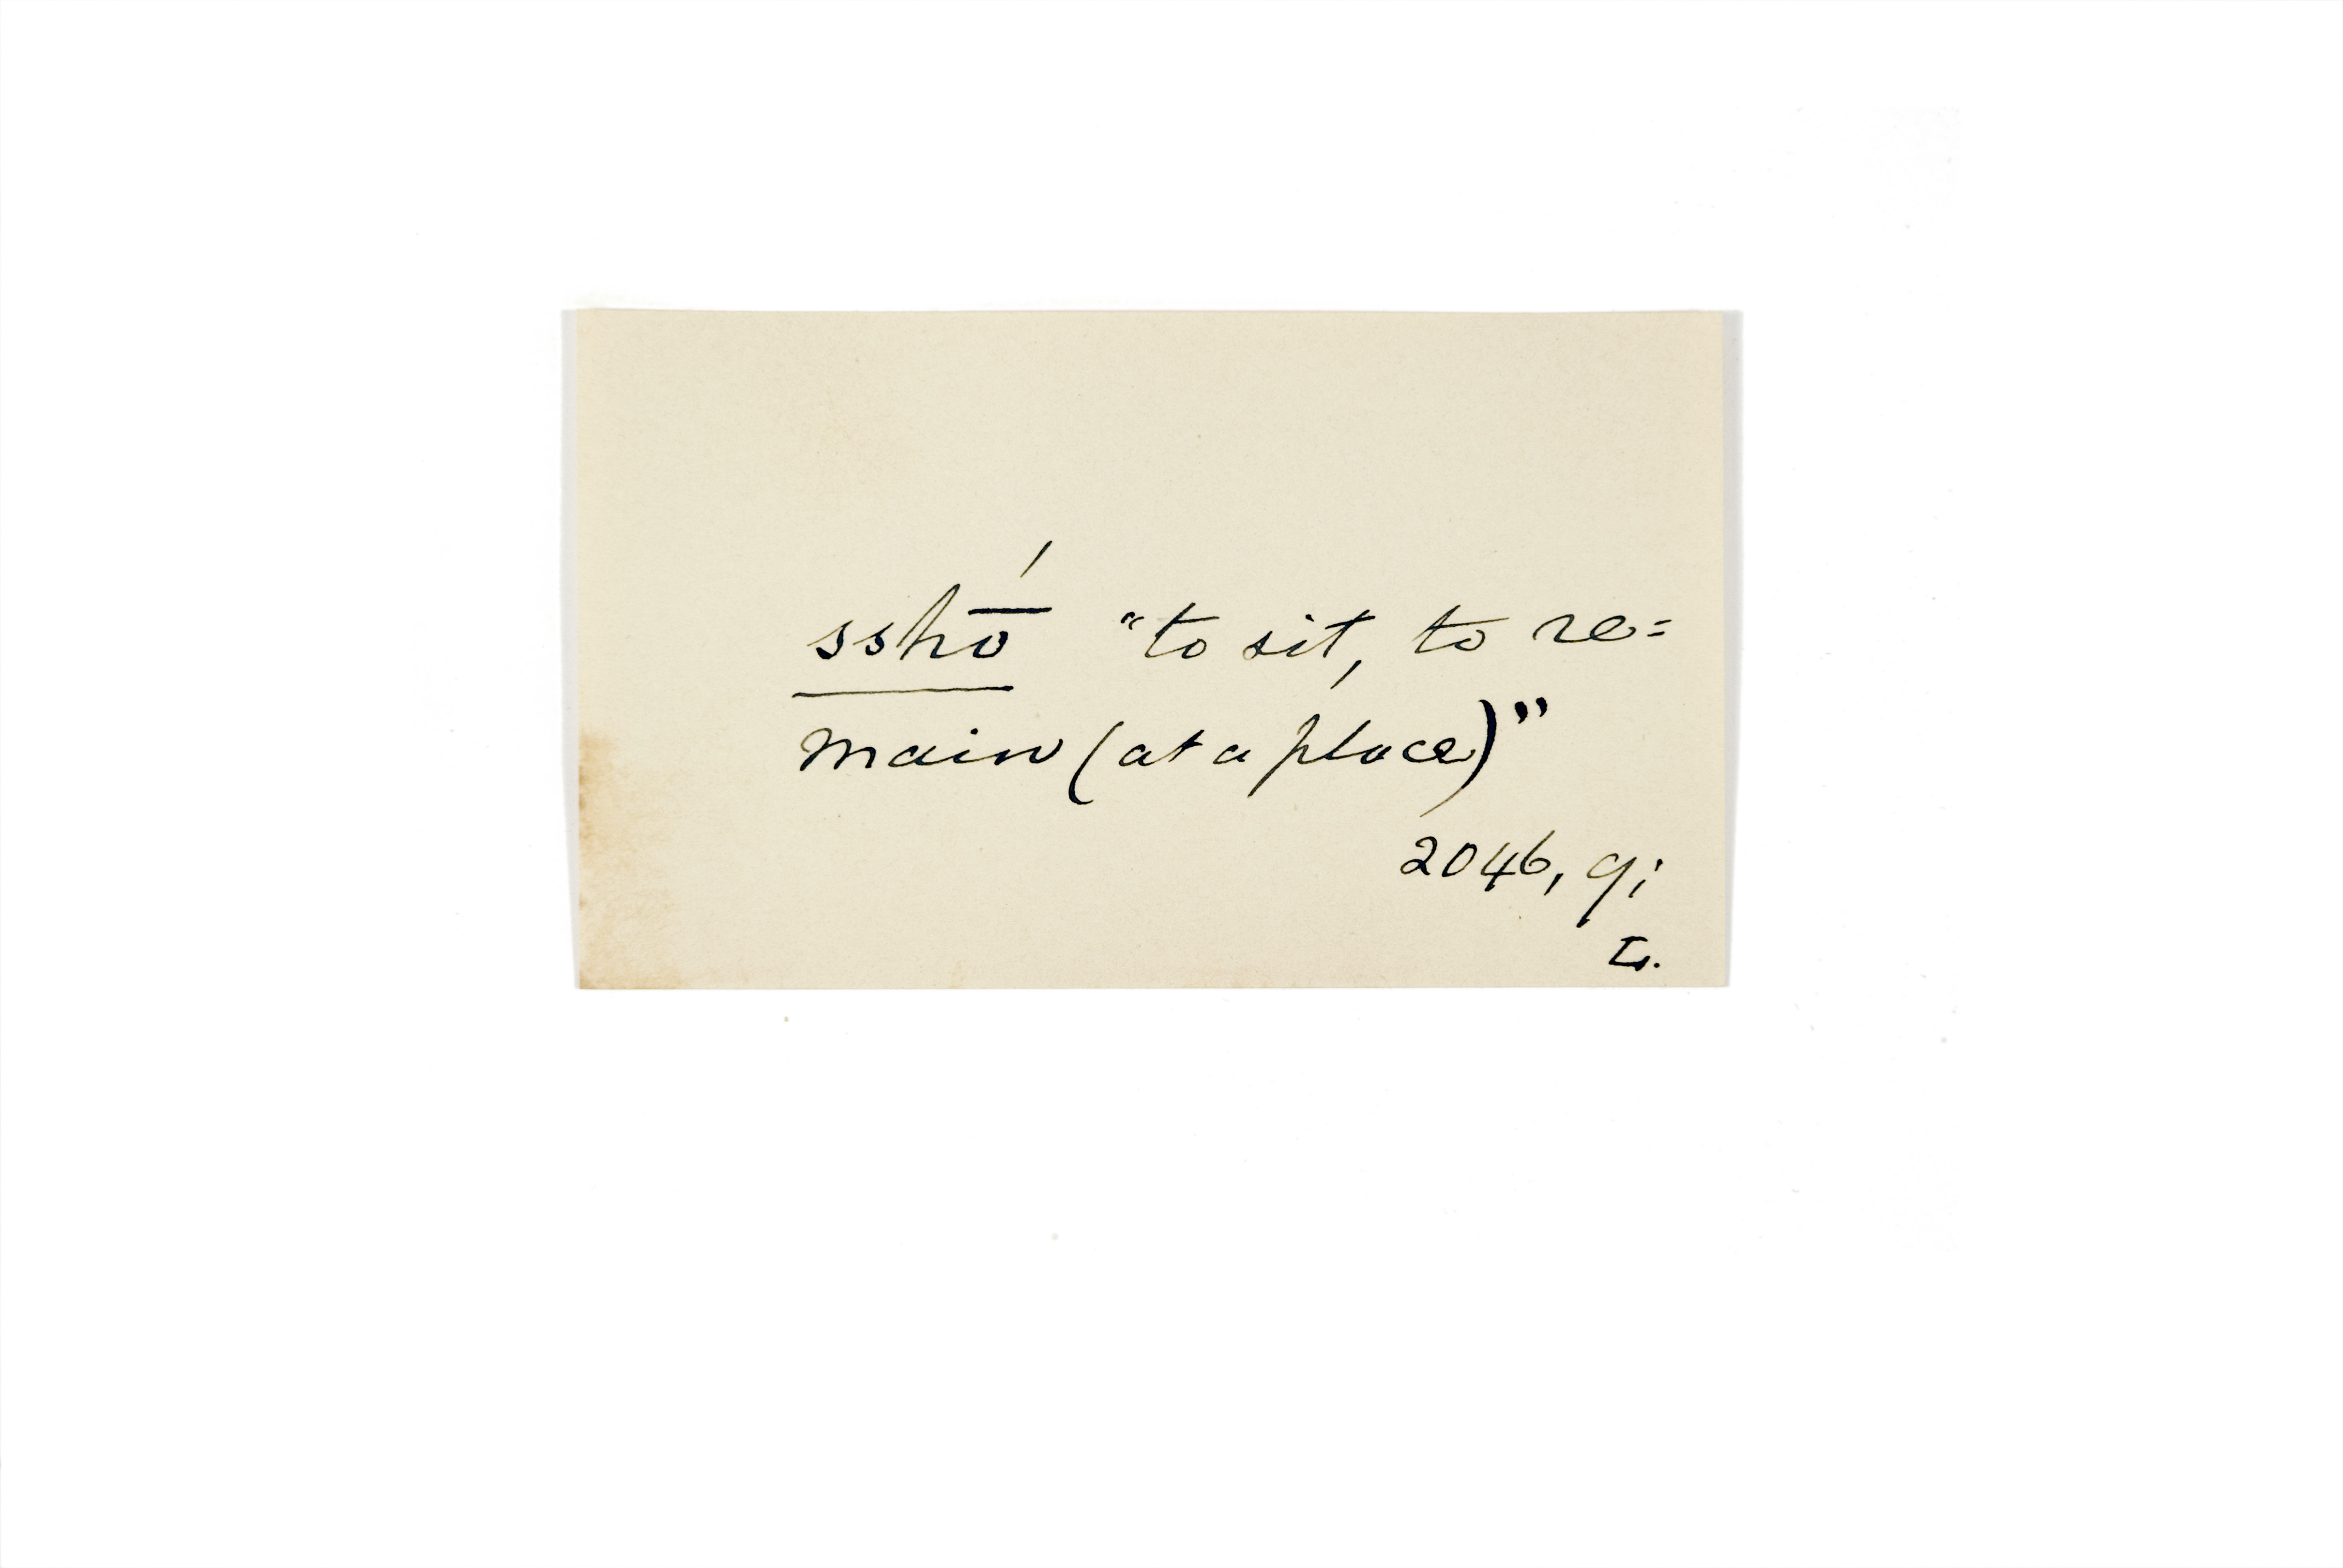 sshṓ "to sit, to re=
main (at a place)"
2046, 9;
L.